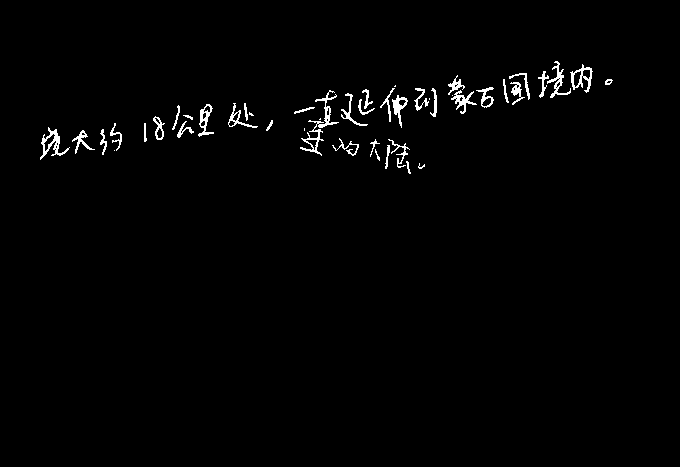 境大约18公里处,一直延伸到蒙古国境内。
的大陆。